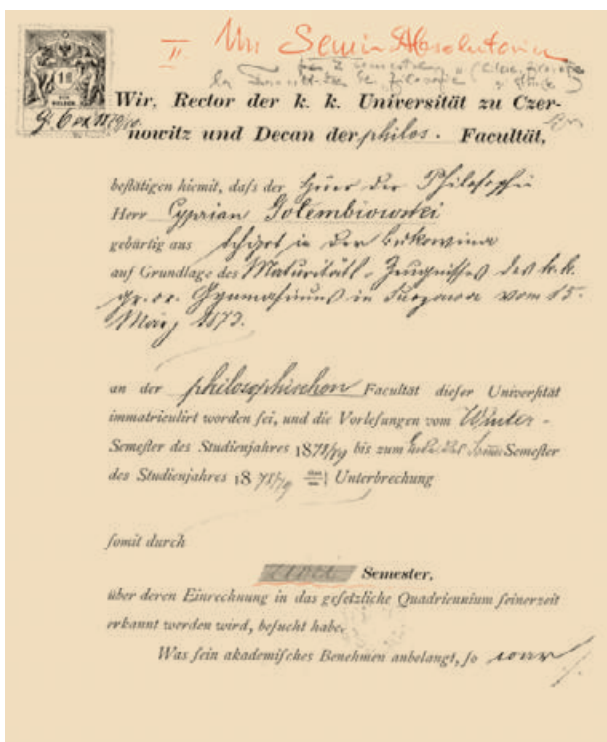 II. Un Semi-Absolutoriu
18
Wir, Rector der k. k. Universität zu Czer-
nowitz und Decan der philos. Facultät,
beſtätigen hiemit, daſs der Hörer der Philosophie
Herr Cyprian Golembiowski
gebürtig aus in der Bukowina
auf Grundlage des Maturitäts-Zeugnisses des k. k.
gr. or. Gymnasiums in Suczawa vom 15.
März 1873.
an der philosophischen Facultät dieſer Univerſität
immatriculirt worden ſei, und die Vorleſungen vom Winter-
Semeſter des Studienjahres 1878/79 bis zum Ende des Semeſter
des Studienjahres 1878/79 Unterbrechung
ſomit durch
zwei Semester,
über deren Einrechnung in das geſetzliche Quadriennium ſeinerzeit
erkannt werden wird, beſucht habe.
Was ſein akademiſches Benehmen anbelangt, ſo war